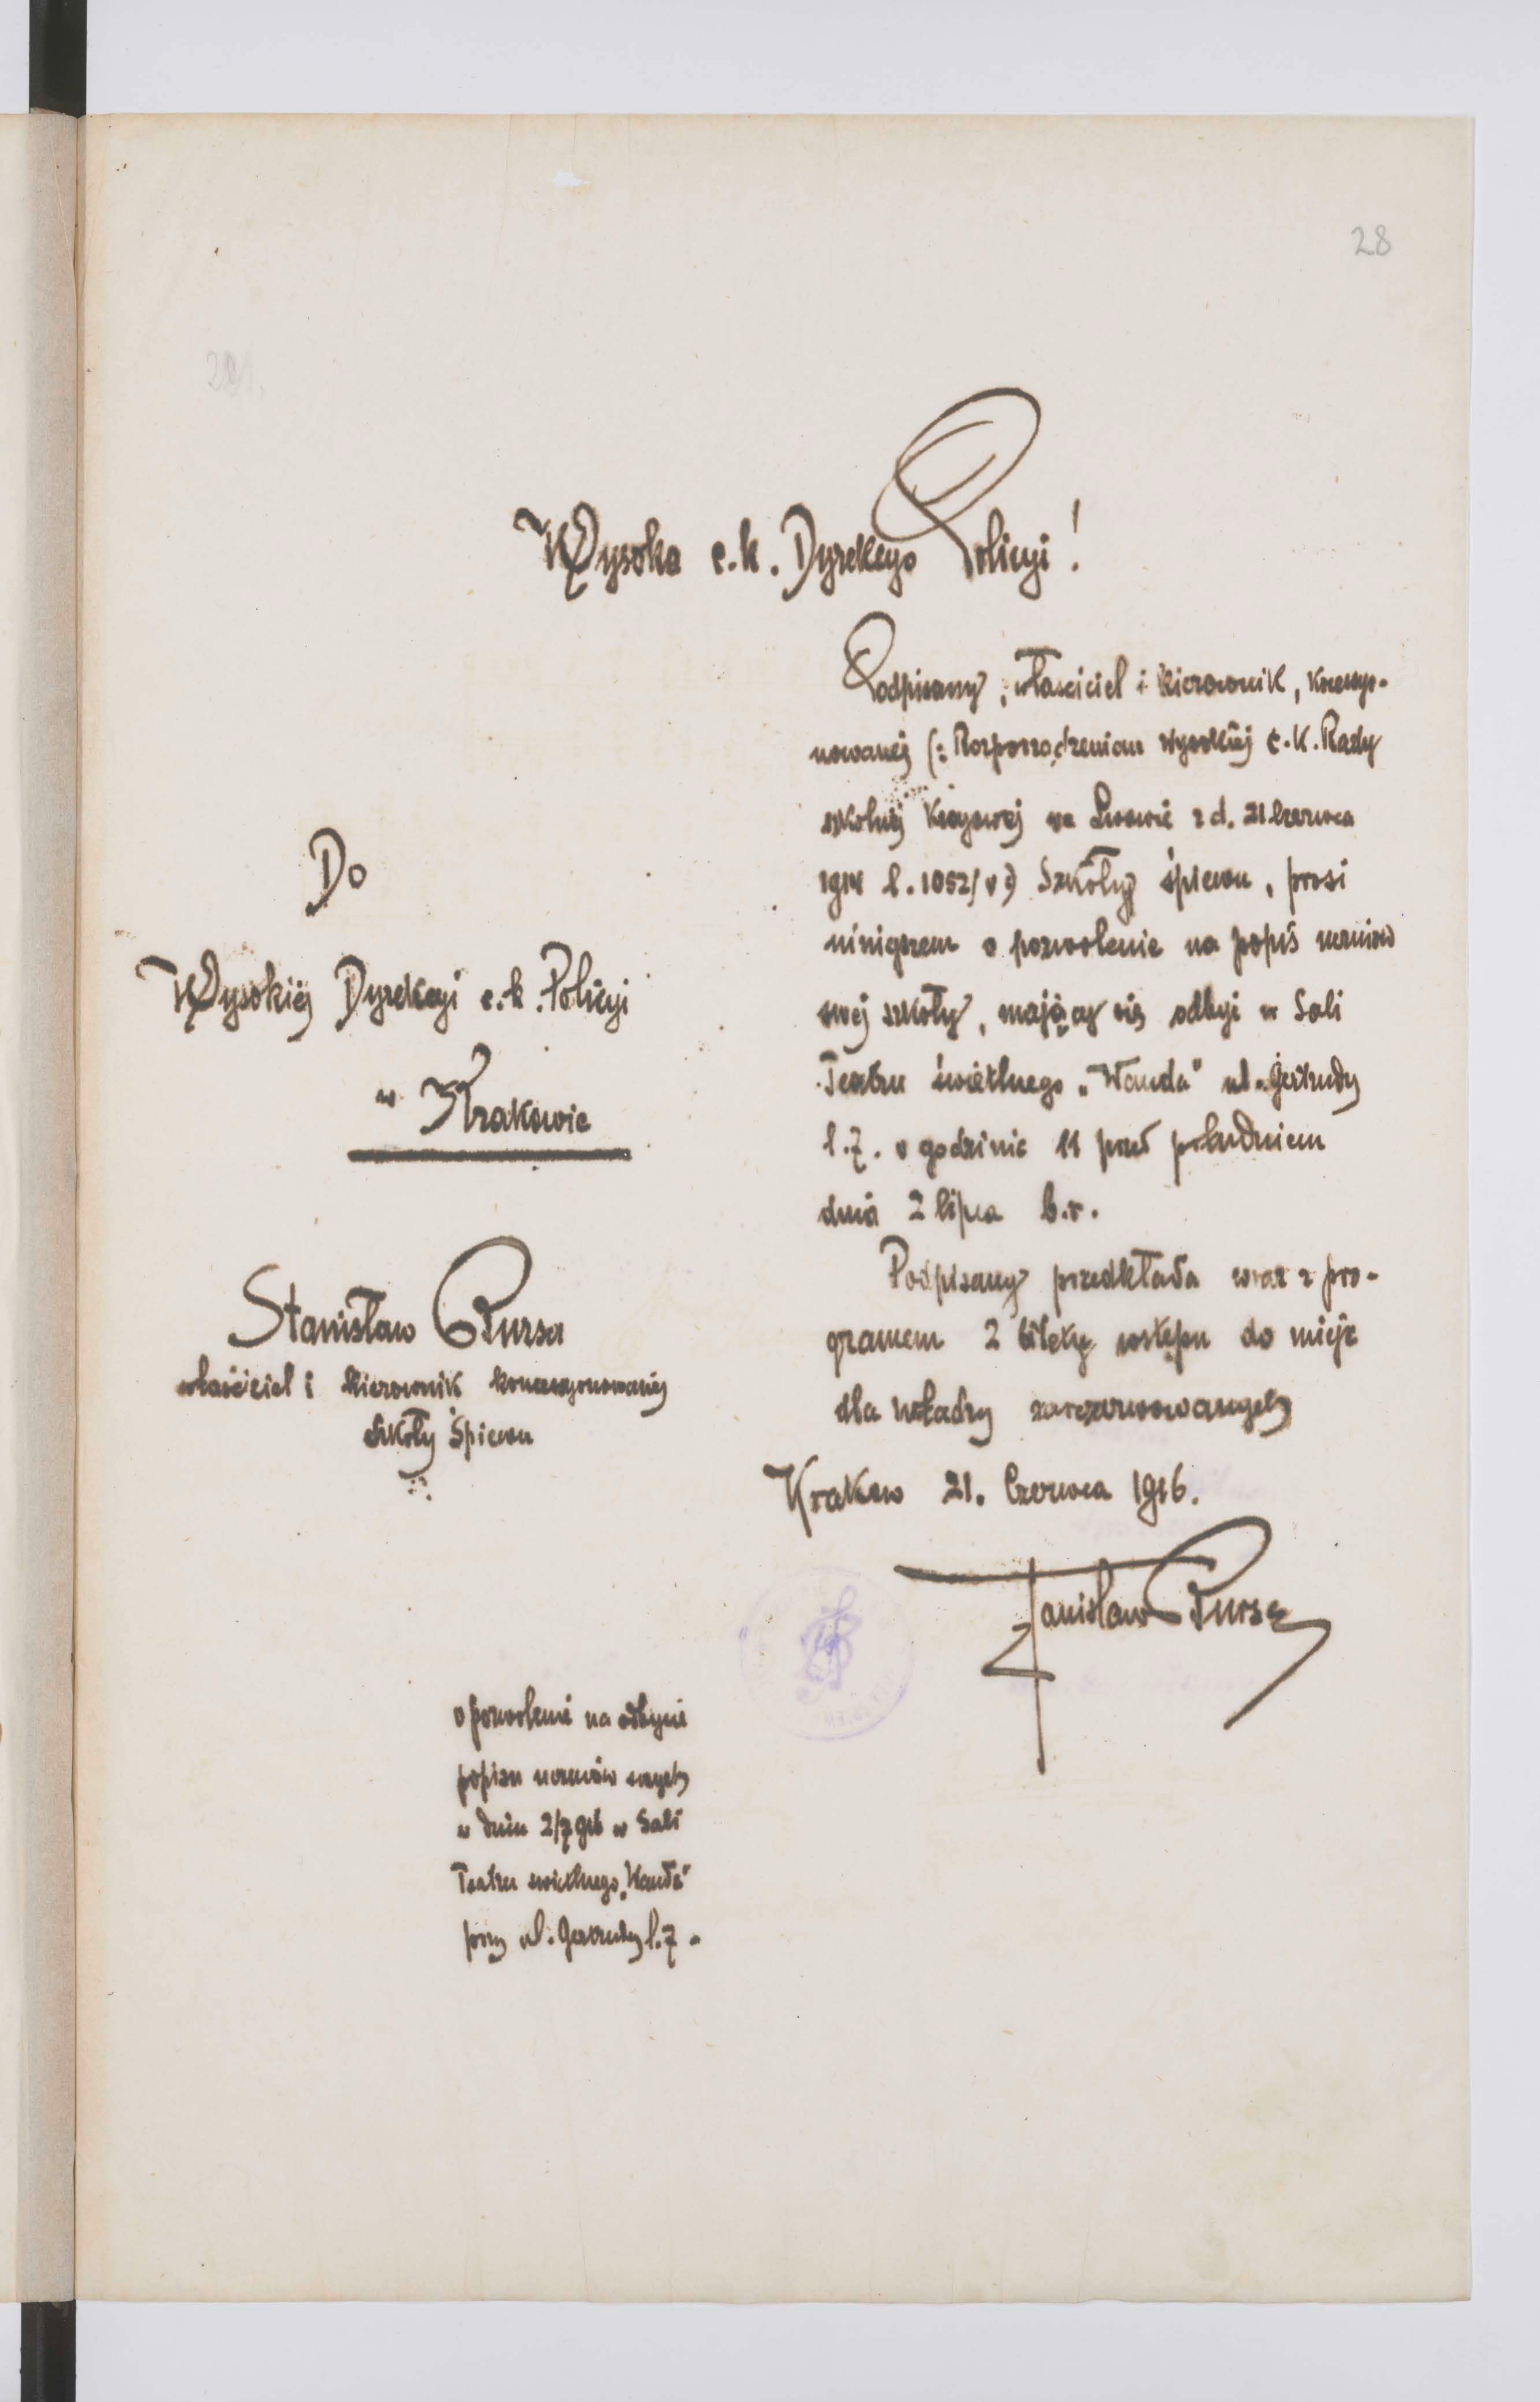 28
Wysoka c.k. Dyrekcyo Policyi!
Podpisany, właściciel i kierownik, koncesyo-
nowanej (: Rozporządzeniem Wysokiej C.K. Rady
szkolnej Krajowej we Lwowie z d. 21 Czerwca
1914 l. 1052/V :) Szkoły śpiewu, prosi
niniejszem o pozwolenie na popis uczniów
swej szkoły, mający się odbyć w Sali
Teatru świetlnego „Wanda" ul. Gertrudy
l. 7. o godzinie 11 przed południem
dnia 2 lipca b.r.
Podpisany przedkłada wraz z pro-
gramem 2 bilety wstępu do miejsc
dla władzy zarezerwowanych
Krakow 21. Czerwca 1916.
Stanisław Bursa
Do
Wysokiej Dyrekcyi c.k. Policyi
w Krakowie
Stanisław Bursa
właściciel i kierownik koncesyonowanej
Szkoły Śpiewu
o pozwolenie na odbycie
popisu uczniów swych
w dniu 2/7 916 w Sali
Teatru świetlnego „Wanda"
przy ul. Gertrudy l. 7.